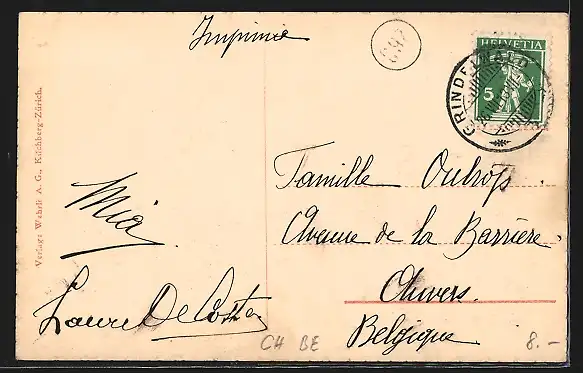 Imprimé
687
HELVETIA
5
GRINDELWALD
Verlag: Wehrli A. G., Kilchberg-Zürich.
Famille
Avenue de la Barrière
Anvers.
Belgique
Mia
Laure De Coster
CH BE
8.-